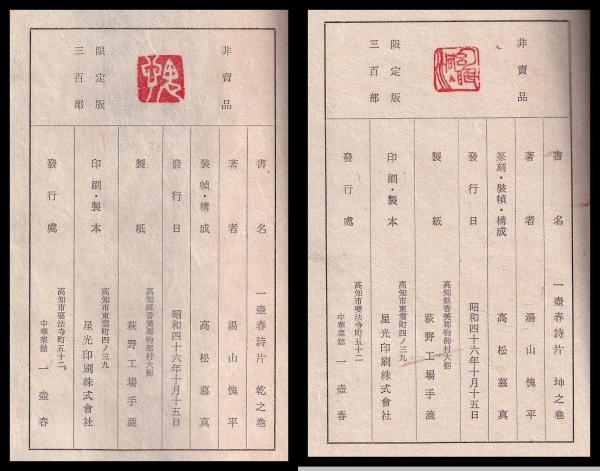 非賣品
限定版
三百部
書名 一壺春詩片 乾之巻
著者 湯山愧平
裝幀・構成 高松慕真
發行日 昭和四十六年十月十五日
製紙 高知縣香美郡物部村大栃
萩野工場手漉
印刷・製本 高知市東雲町四ノ三九
星光印刷株式會社
發行處 高知市要法寺町五十二
中華菜館 一壺春
非賣品
限定版
三百部
書名 一壺春詩片 坤之巻
著者 湯山愧平
篆刻・裝幀・構成 高松慕真
發行日 昭和四十六年十月十五日
製紙 高知縣香美郡物部村大栃
萩野工場手漉
印刷・製本 高知市東雲町四ノ三九
星光印刷株式會社
發行處 高知市要法寺町五十二
中華菜館 一壺春